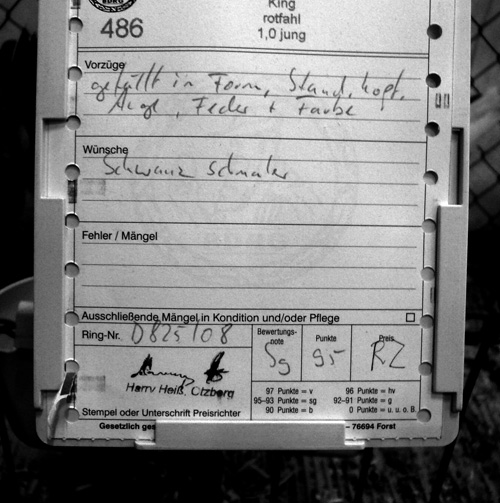 486
King
rotfahl
1,0 jung
Vorzüge
gefällt in Form, Stand, Kopf,
Auge, Feder + Farbe
Wünsche
Schwanz schmaler
Fehler / Mängel
Ausschließende Mängel in Kondition und/oder Pflege
Ring-Nr. D825/08
Bewertungs-
note
Punkte
Preis
Sg
95
RZ
Harry Heiß, Otzberg
97 Punkte = v
96 Punkte = hv
95–93 Punkte = sg
92–91 Punkte = g
90 Punkte = b
0 Punkte = u. u. o. B.
Stempel oder Unterschrift Preisrichter
Gesetzlich ges
– 76694 Forst